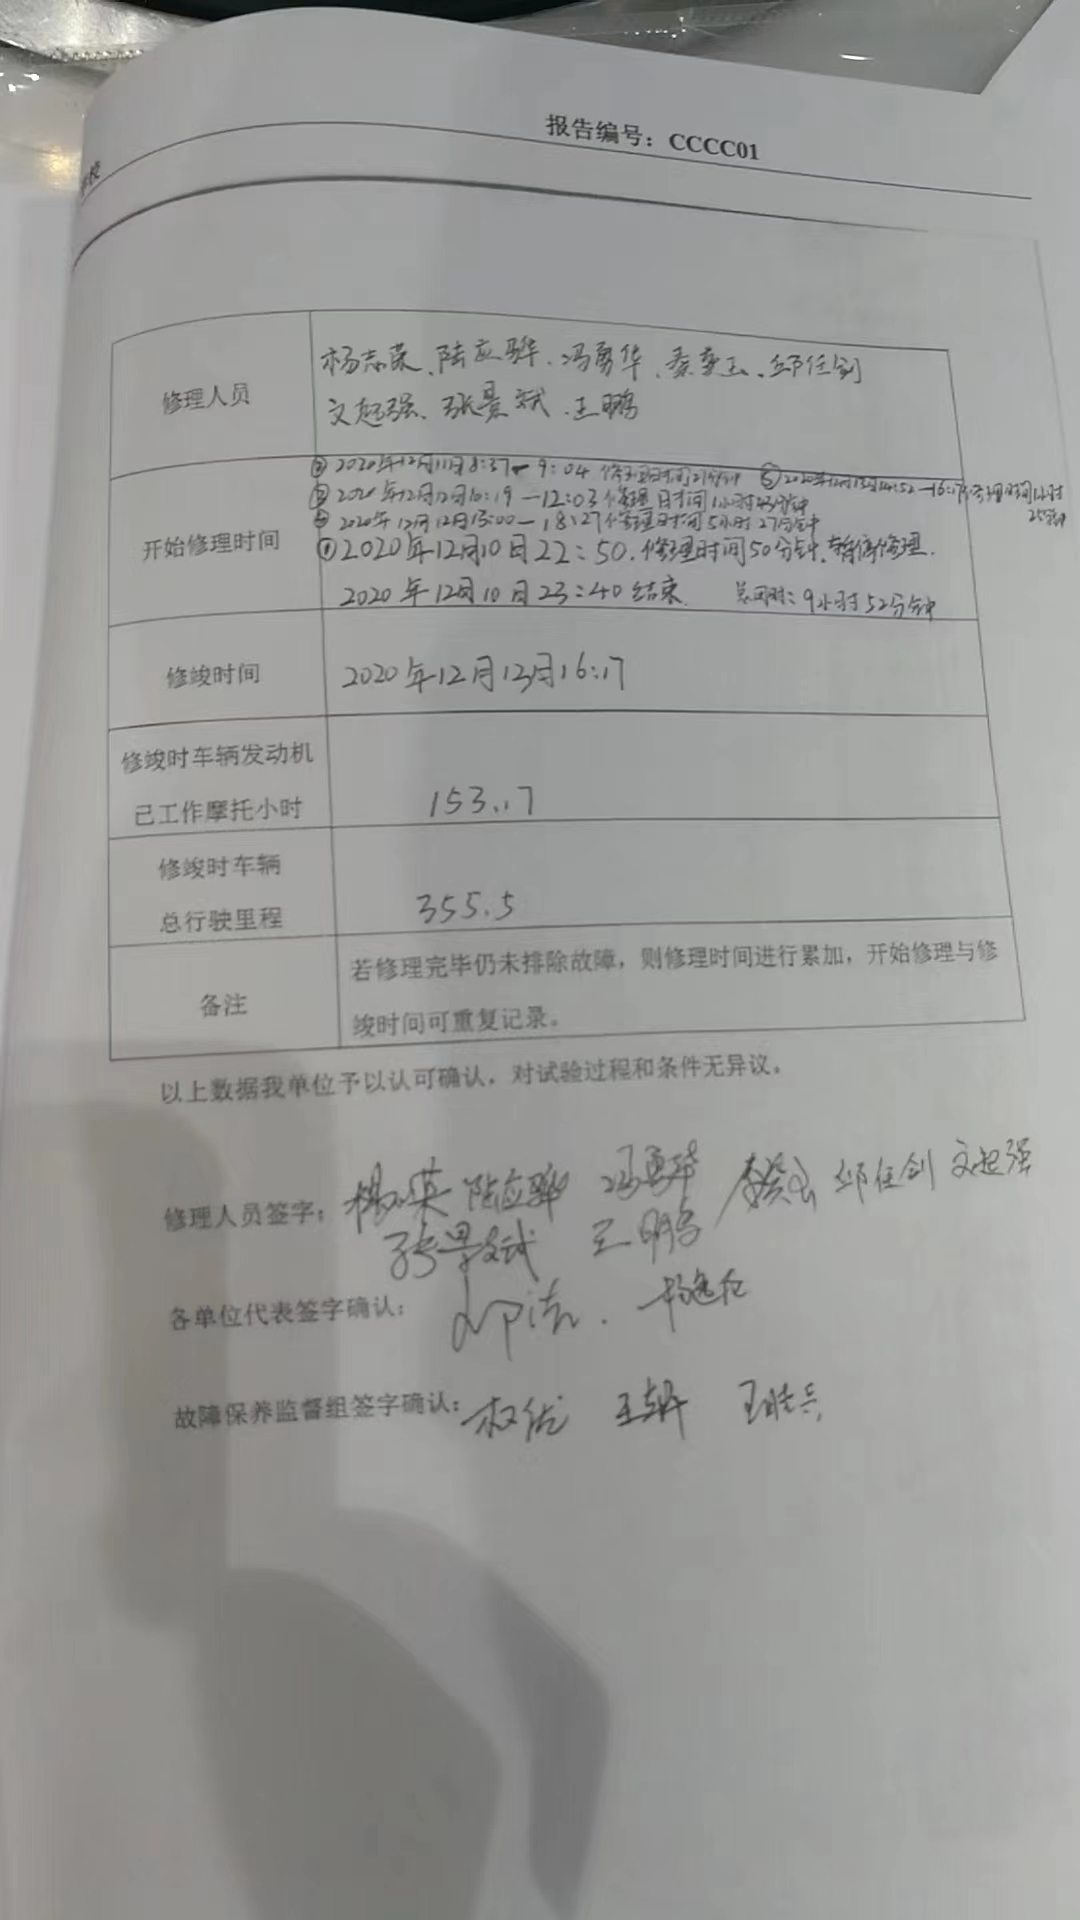 报告编号：CCCC01
校
修理人员
杨志荣、陆应骅、冯勇华、秦奎玉、邱任剑
文起强、张景斌、王鹏
开始修理时间
② 2020年12月11日8:37-9:04 修理时间27分钟 ⑤2020年12月13日14:52-16:17修理时间1小时25分钟
③ 2020年12月12日10:19-12:03修理时间1小时43分钟
④ 2020年12月12日13:00-18:27修理时间5小时27分钟
①2020年12月10日22:50.修理时间50分钟、暂停修理.
2020年12月10日23:40结束. 总用时：9小时52分钟
修竣时间
2020年12月13日16:17
修竣时车辆发动机
已工作摩托小时
153.17
修竣时车辆
总行驶里程
355.5
备注
若修理完毕仍未排除故障，则修理时间进行累加，开始修理与修
竣时间可重复记录。
以上数据我单位予以认可确认，对试验过程和条件无异议。
修理人员签字： 陆应骅 冯勇华 邱任剑 文起强
张景斌 王鹏
各单位代表签字确认：
故障保养监督组签字确认： 权优